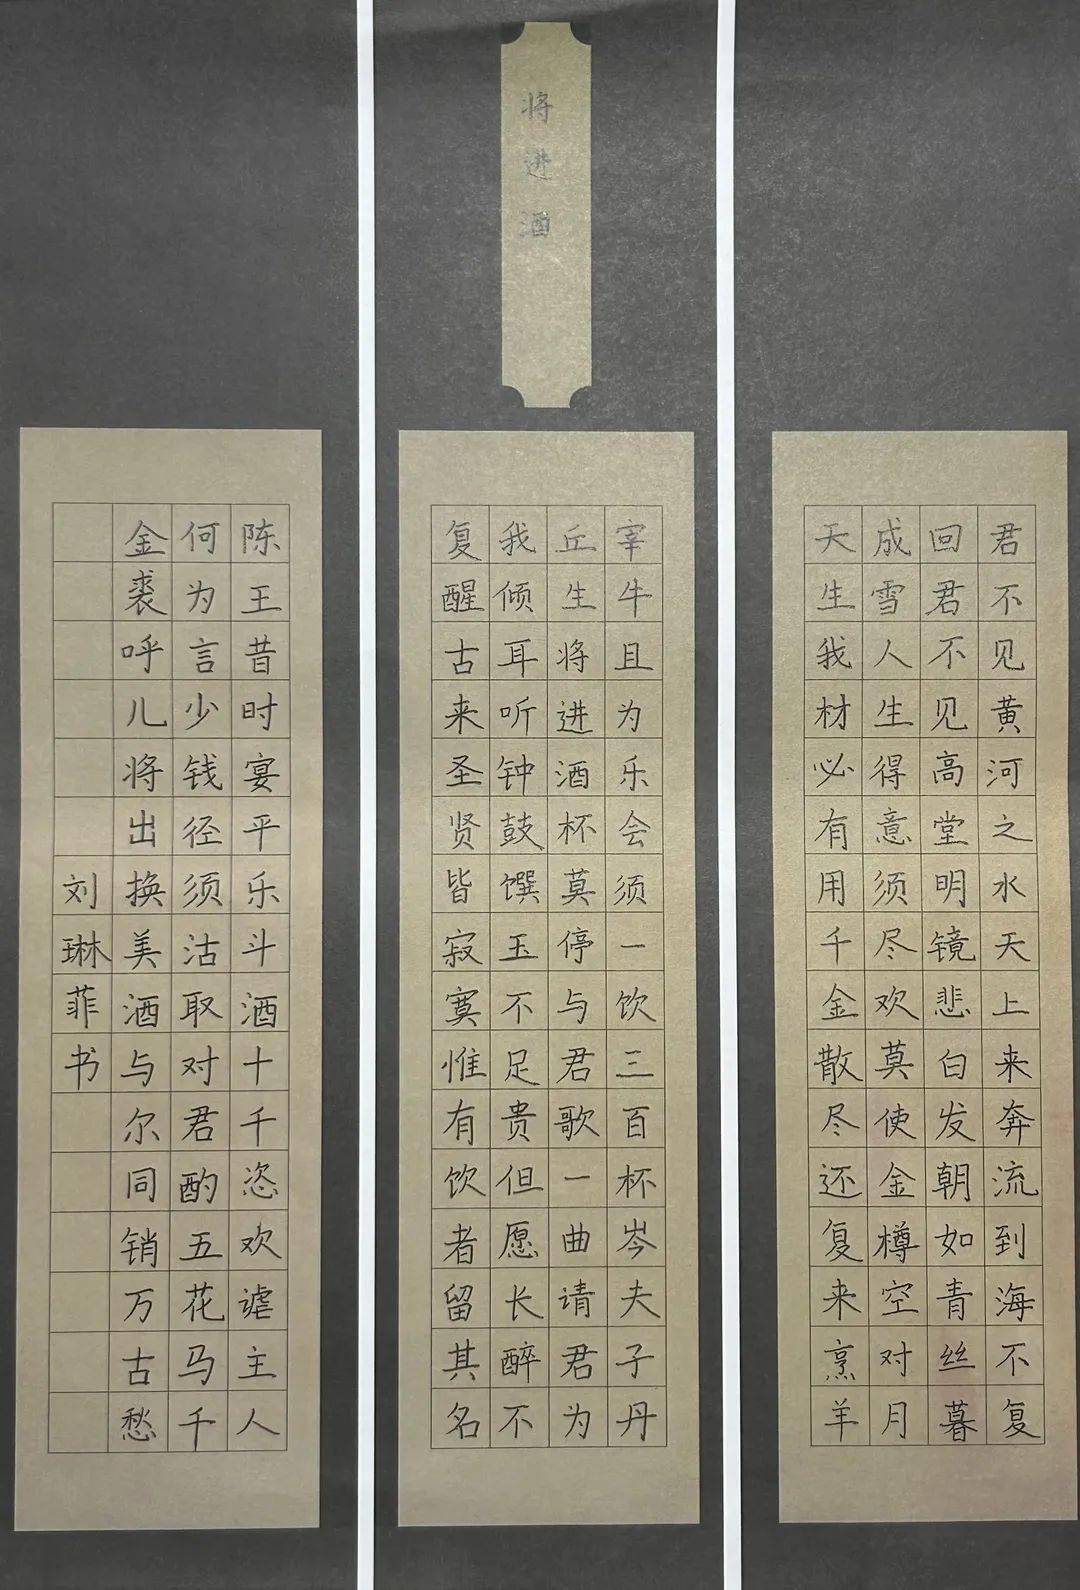 将进酒
君不见黄河之水天上来奔流到海不复
回君不见高堂明镜悲白发朝如青丝暮
成雪人生得意须尽欢莫使金樽空对月
天生我材必有用千金散尽还复来烹羊
宰牛且为乐会须一饮三百杯岑夫子丹
丘生将进酒杯莫停与君歌一曲请君为
我倾耳听钟鼓馔玉不足贵但愿长醉不
复醒古来圣贤皆寂寞惟有饮者留其名
陈王昔时宴平乐斗酒十千恣欢谑主人
何为言少钱径须沽取对君酌五花马千
金裘呼儿将出换美酒与尔同销万古愁
刘琳菲书